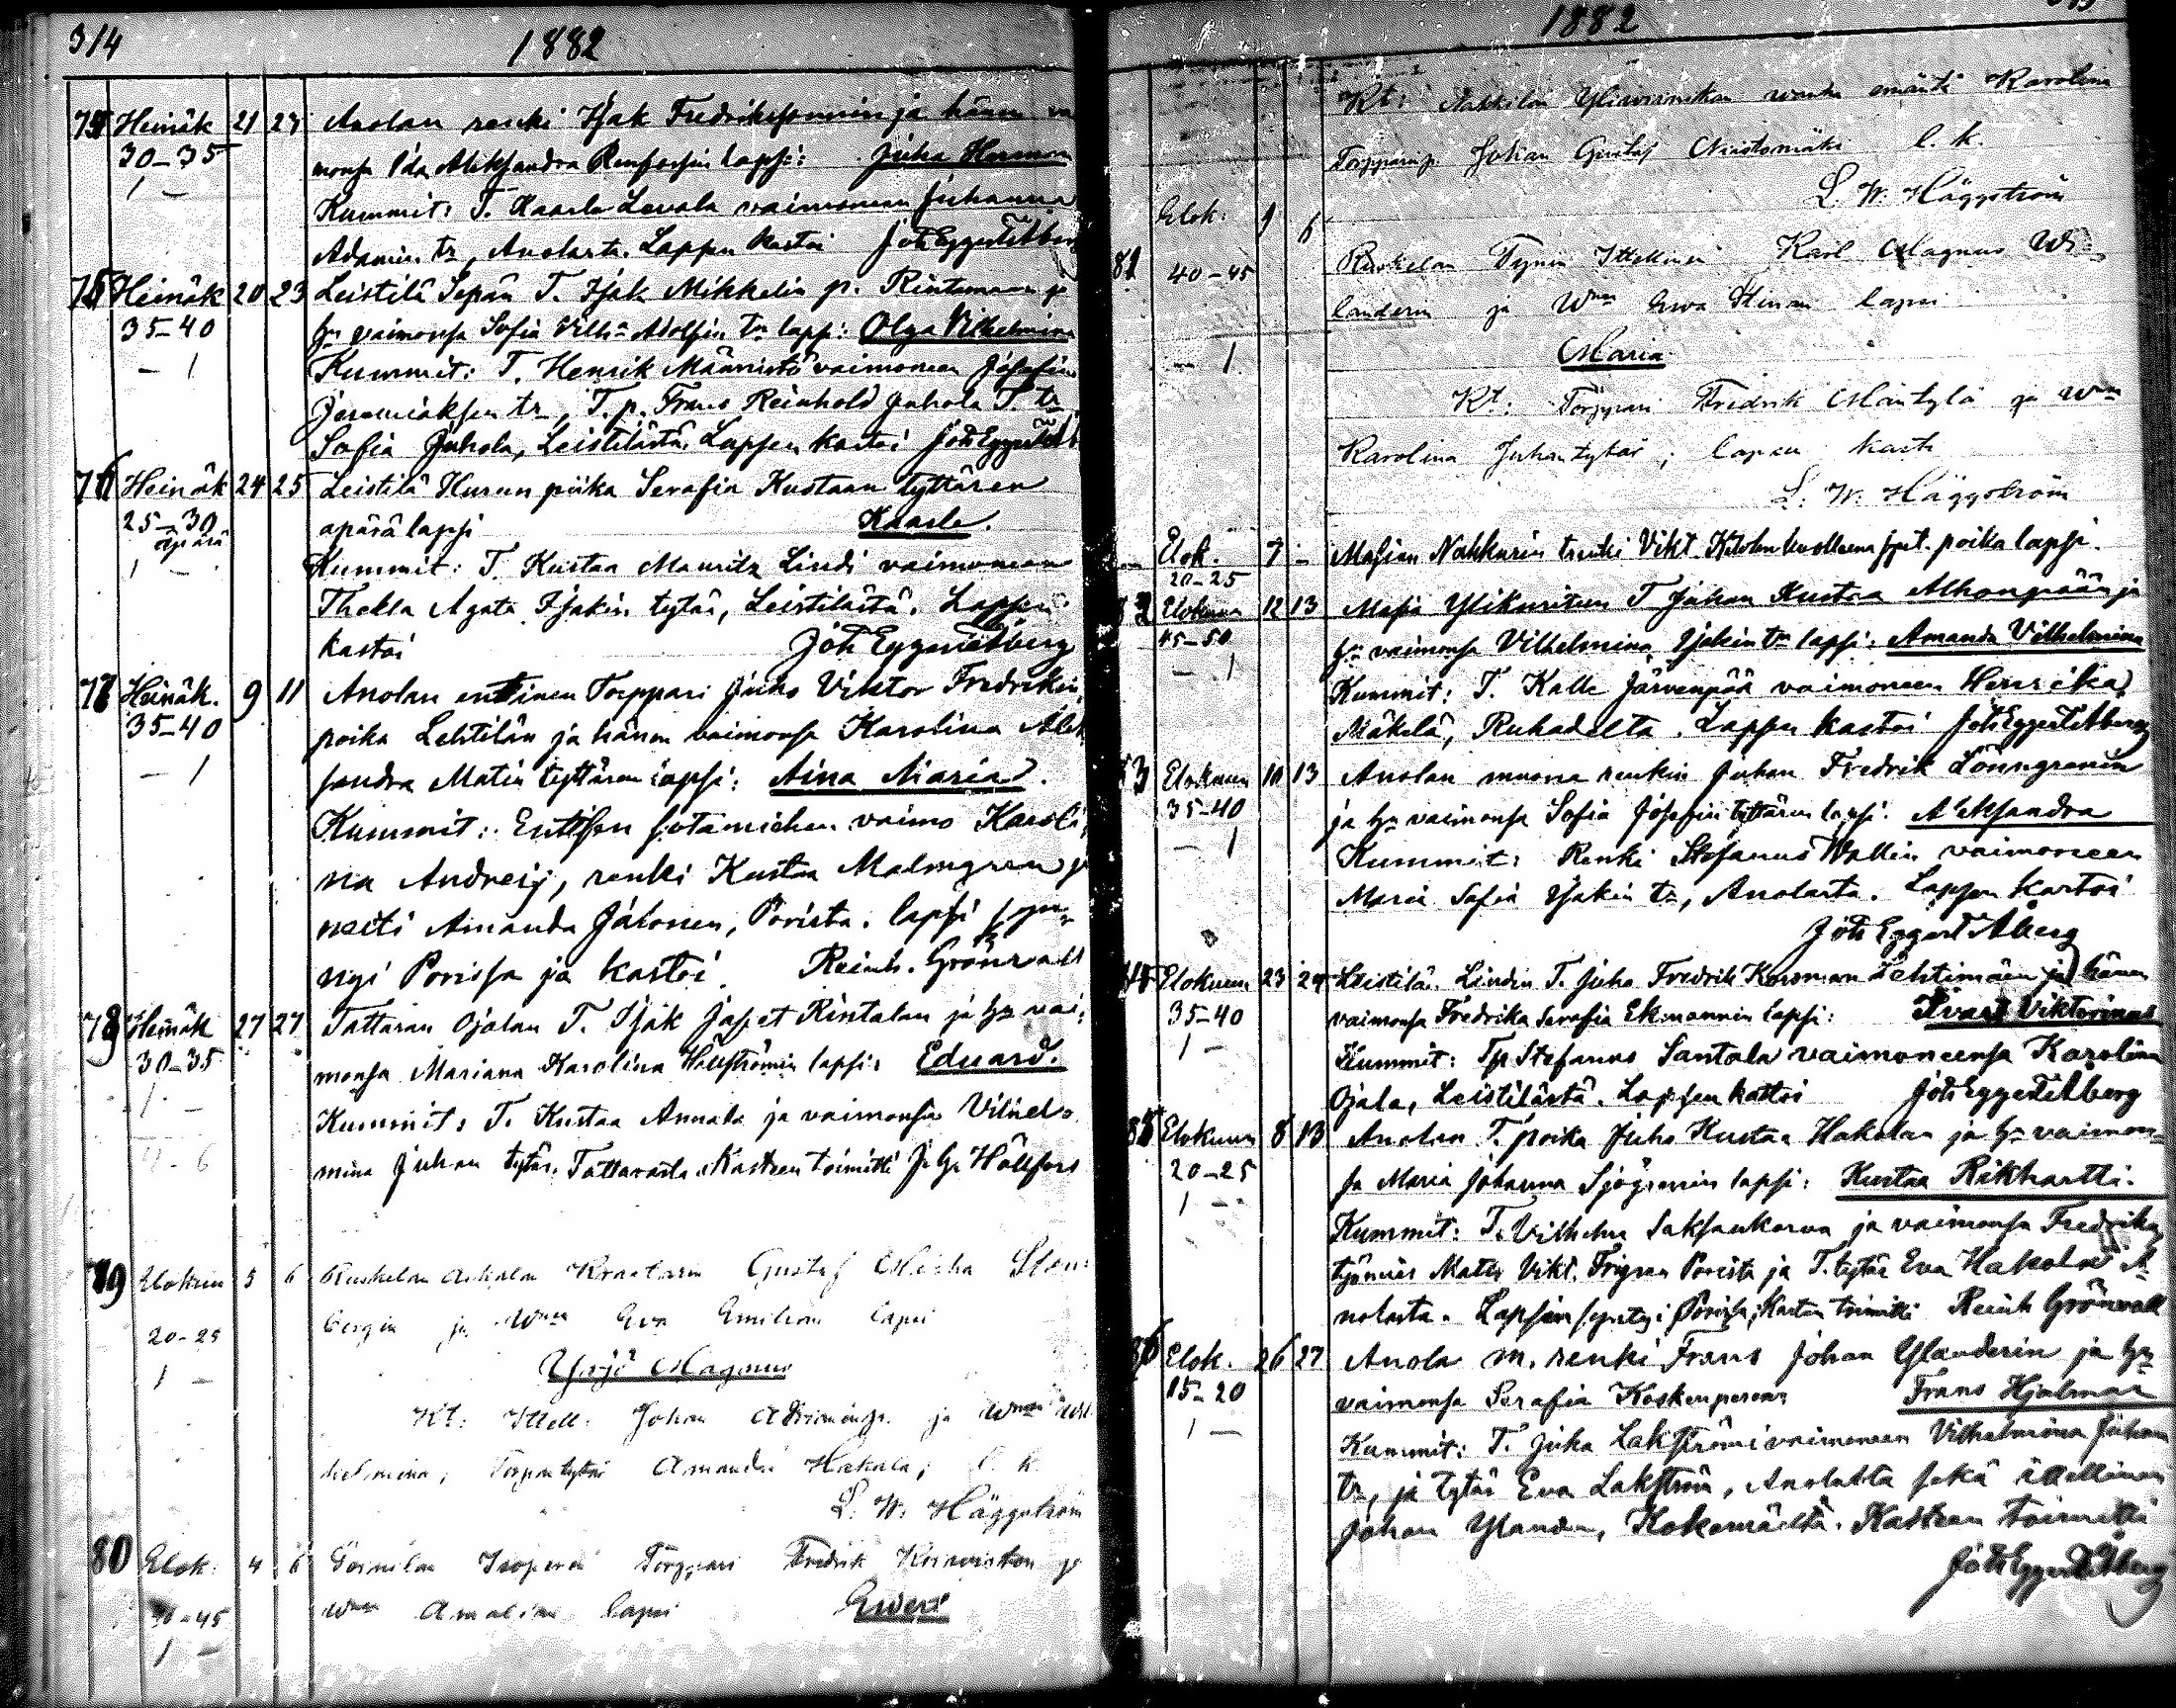 314
1882
74 Heinäk 21 23 Anolan renki Isak Fredriksonnin ja hänen
30-35 monsa Ida Aleksandra lapsi: Juha Herman
1 - Kummit: T. Kaarle Levala vaimoneen Juhanna
Adamin tr, Anolasta. Lapsen kastoi Joh Eggert Åberg
75 Heinäk 20 23 Leistilä Sepän T. Isak Mikkelin p. Rintamaan ja
35-40 hn vaimonsa Sofia Vilh-a Adolfin tr lapsi: Olga Vilhelmina
- 1 Kummit: T. Henrik Männistö vaimoneen Josefina
Jeremiaksen tr, T. p. Frans Reinhold Juhola T. tr
Sofia Juhola, Leistilästä. Lapsen kastoi Joh Eggert
76 Heinäk 24 25 Leistilä Hurun piika Serafia Kustaan tyttären
25-30 äpärä lapsi Kaarle.
äpärä
1 - Kummit: T. Kustaa Mauritz Lindi vaimoneen
Thekla Agata Isakin tytär, Leistilästä. Lapsen
kastoi Joh Eggert Åberg
77 Heinäk. 9 11 Anolan entinen Torppari Juho Viktor Fredrikin
35-40 poika Lehtilän ja hänen vaimonsa Karolina Alek
- 1 sandra Matin tyttären lapsi: Aina Maria.
Kummit: Entisen sotamiehen vaimo Karoli
na Andreij, renki Kustaa Malmgren ja
neiti Amanda Jalonen, Porista. lapsi syn
nyi Porissa ja kastoi Reinh. Grönvall
78 Heinäk 27 27 Tattaran Ojalan T. Isak Jafet Rintalan ja hn vai
30-35 monsa Mariana Karolina Hällströmin lapsi: Eduard.
1 - Kummit: T. Kustaa Annala ja vaimonsa Vilhel
mina Juhan tytär, Tattarasta. Kasteen toimitti Hällfors
79 Elokuu 5 6 Ruskelan Gustaf
20-25 bergin ja Wmon Eva Emilian lapsi
1 - Yrjö Magnus
Kt: Ittell. Johan ja Wmon Wil
helmina, Torpantytär Amanda Hakala; l. k.
L. W. Häggström
80 Elok: 4 6 Torppari Fredrik Koiviston ja
40-45 Wmon Amalian lapsi Edert
1 -
1882
Kt: Nakkilan wanha emäntä Karolina
Torpparinp. Johan Gustaf l. k.
L. W. Häggström
81 Elok: 1 6 Ruskelan Ittellinen Karl Magnus Wi
40-45 landerin ja Wmon Eewa lapsi
- 1 Maria
Kt: Torppari Fredrik Mäntylä ja Wmon
Karolina Juhantytär; lapsen kast.
L. W. Häggström
Elok. 7 - Masian Nahkurin Vikt. kuolleena synt. poika lapsi.
20-25
82 Elokuun 12 13 Masia Ylikuritun T Juhan Kustaa Alhonpään ja
45-50 hn vaimonsa Vilhelmina Isakin tr lapsi: Amanda Vilhelmina
- 1 Kummit: T. Kalle Järvenpää vaimoneen Henrika
Mäkelä, Ruhadelta. Lapsen kastoi Joh Eggert Åberg
83 Elokuun 10 13 Anolan muona renkin Juhan Fredrik Lönngrenin
35-40 ja hn vaimonsa Sofia Josefin tyttären lapsi: Aleksandra
- 1 Kummit: Renki Stefanus Wallin vaimoneen
Maria Sofia Isakin tr, Anolasta. Lapsen kastoi
Joh Eggert Åberg
84 Elokuun 23 24 Leistilä. Lindin T. Juho Fredrik Korsman Lehtimäen ja hänen
35-40 vaimonsa Fredrika Serafia Ekmannin lapsi: Iivari Viktorinus
1 - Kummit: Tp Stefanus Santala vaimoneensa Karolina
Ojala, Leistilästä. Lapsen kastoi Joh Eggert Åberg
85 Elokuun 8 13 Anolan T. poika Juho Kustaa Hakolan ja hn vaimon
20-25 sa Maria Johanna Sjögrenin lapsi: Kustaa Rikhartti.
1 - Kummit: T. Vilhelm Saksankorva ja vaimonsa Fredrika,
työmies Mats Vikt. Frigren Porista ja T. tytär Eva Hakola A
nolasta. Lapsi syntyi Porissa, Kasteen toimitti Reinh Grönvall
86 Elok. 26 27 Anola m. renki Frans Johan Ylanderin ja hn
15-20 vaimonsa Serafia Koskenperran Frans Hjalmar
1 - Kummit: T. Juha Lakström vaimoneen Vilhelmiina Juhan
tr, ja tytär Eva Lakström, Anolasta sekä itellinen
Johan Ylander, Kokemäeltä. Kasteen toimitti
Joh Eggert Åberg